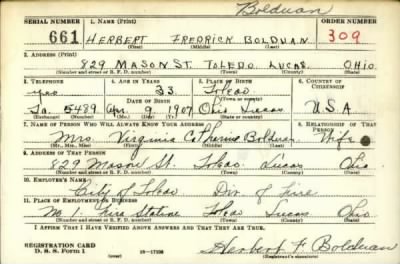 Bolduan
SERIAL NUMBER 1. NAME (Print) ORDER NUMBER
661 HERBERT FREDRICK BOLDUAN 309
(First) (Middle) (Last)
2. ADDRESS (Print)
829 MASON ST. TOLEDO, LUCAS OHIO.
(Number and street or R. F. D. number) (Town) (County) (State)
3. TELEPHONE 4. AGE IN YEARS 5. PLACE OF BIRTH 6. COUNTRY OF CITIZENSHIP
yes 33 Toledo
DATE OF BIRTH (Town or county)
Ta. 5489 Apr. 9 1907 Ohio Lucas U.S.A
(Exchange) (Number) (Mo.) (Day) (Yr.) (State or country)
7. NAME OF PERSON WHO WILL ALWAYS KNOW YOUR ADDRESS 8. RELATIONSHIP OF THAT PERSON
Mrs. Virginia Catherine Bolduan Wife
(Mr., Mrs., Miss) (First) (Middle) (Last)
9. ADDRESS OF THAT PERSON
829 Mason St. Toledo Lucas Ohio
(Number and street or R. F. D. number) (Town) (County) (State)
10. EMPLOYER'S NAME
City of Toledo Div. of Fire
11. PLACE OF EMPLOYMENT OR BUSINESS
No 1. Fire Station Toledo Lucas Ohio.
(Number and street or R. F. D. number) (Town) (County) (State)
I AFFIRM THAT I HAVE VERIFIED ABOVE ANSWERS AND THAT THEY ARE TRUE.
REGISTRATION CARD
D. S. S. Form 1 Herbert F Bolduan
(Registrant's signature)